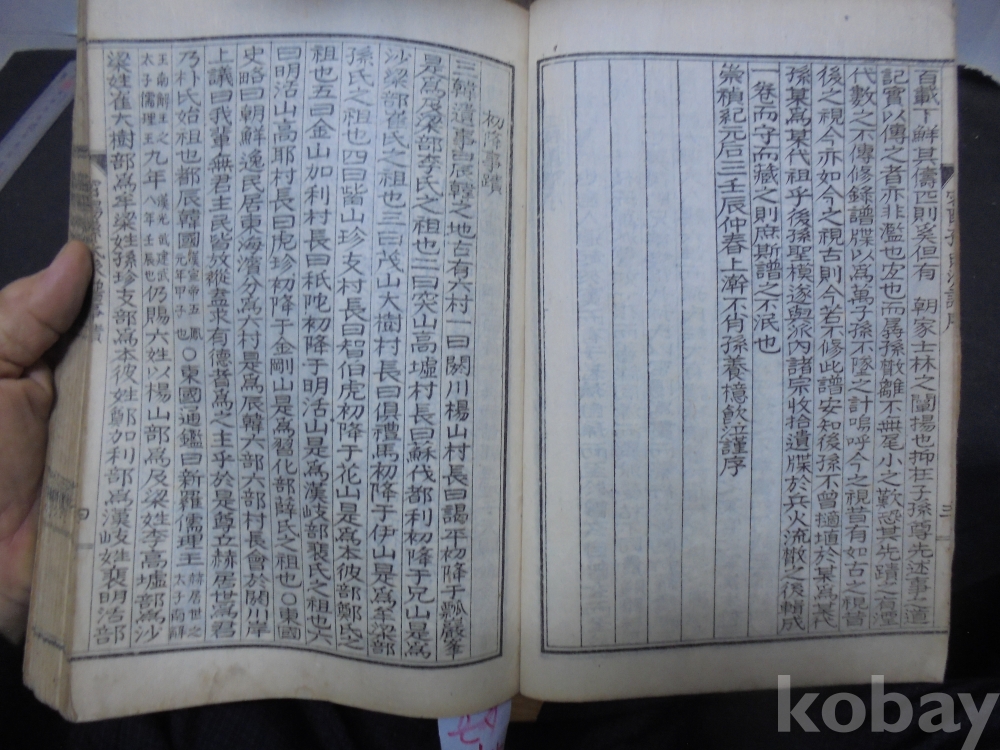 百載下鮮其儔匹則奚但有 朝家士林之闡揚也抑在子孫尊先述事之道
記實以傳之者亦非濫也左也而孱孫散離不無尾小之歎恐其先蹟之有湮
代數之不傳修錄譜牒以爲萬子孫不墜之計嗚呼今之視昔有如古之視昔
後之視今亦如今之視古則今若不修此譜安知後孫不曾擿埴於某爲某代
孫某爲某代祖乎後孫聖模遂與派內諸宗收拾遺牒於兵火流散之後輯成
一卷而守而藏之則庶斯譜之不泯也
崇禎紀元后三壬辰仲春上澣不肖孫養檍飮泣謹序
三
初降事蹟
三韓遺事曰辰韓之地古有六村一曰閼川楊山村長曰謁平初降于瓢巖峯
是爲及梁部李氏之祖也二曰突山高墟村長曰蘇伐都利初降于兄山是爲
沙梁部崔氏之祖也三曰茂山大樹村長曰俱禮馬初降于伊山是爲牟梁部
孫氏之祖也四曰觜山珍支村長曰智伯虎初降于花山是爲本彼部鄭氏之
祖也五曰金山加利村長曰秪陀初降于明活山是爲漢岐部裵氏之祖也六
曰明活山高耶村長曰虎珍初降于金剛山是爲習化部薛氏之祖也○東國
史略曰朝鮮逸民居東海濱分爲六村是爲辰韓六部六部村長會於閼川岸
上議曰我輩無君主民皆放縱盍求有德者爲之主乎於是尊立赫居世爲君
乃朴氏始祖也都辰韓國漢宣帝五鳳元年甲子也○東國通鑑曰新羅儒理王赫居世之太子南解
王南解王之太子儒理王九年漢光武建武八年壬辰也仍賜六姓以楊山部爲及梁姓李高墟部爲沙
梁姓崔大樹部爲牟梁姓孫珍支部爲本彼姓鄭加利部爲漢岐姓裵明活部
四
kobay